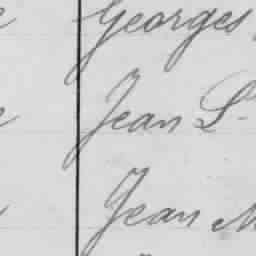 Georges
Jean L
Jean M